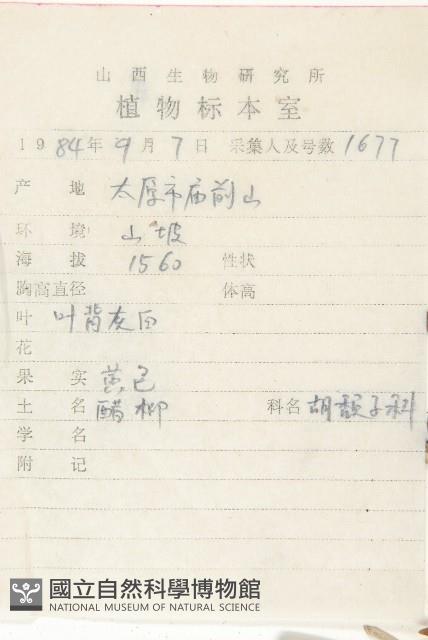 山西生物研究所
植物标本室
1984年9月7日 采集人及号数 1677
产 地 太原市庙前山
环 境 山坡
海 拔 1560 性状
胸高直径 体高
叶 叶背灰白
花
果 实 黄色
土 名 醋柳 科名 胡颓子科
学 名
附 记
國立自然科學博物館
NATIONAL MUSEUM OF NATURAL SCIENCE